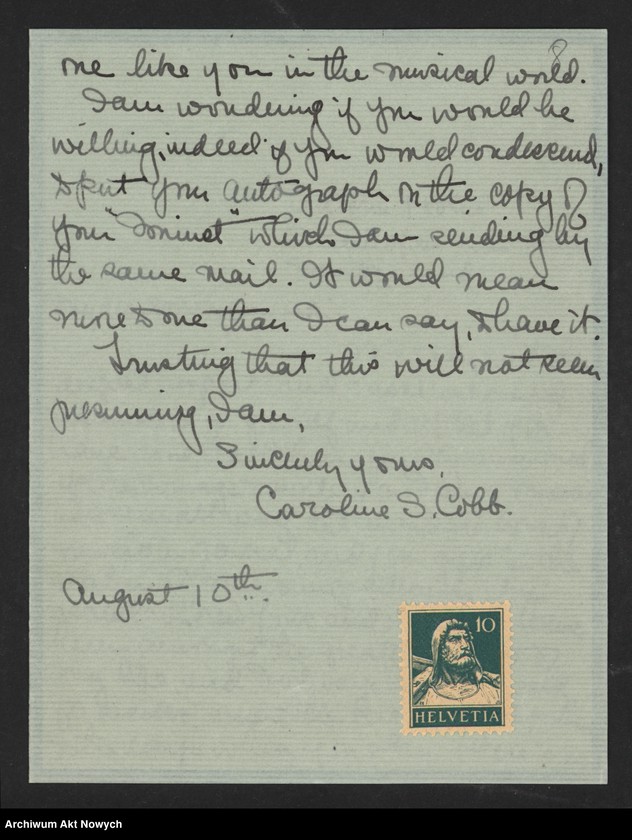 8
one like you in the musical world.
I am wondering if you would be
willing, indeed if you would condescend,
to put your autograph on the copy of
your "Minuet" which I am sending by
the same mail. It would mean
more to me than I can say, to have it.
Trusting that this will not seem
presuming, I am,
Sincerely yours,
Caroline S. Cobb.
August 10th.
10
HELVETIA
Archiwum Akt Nowych